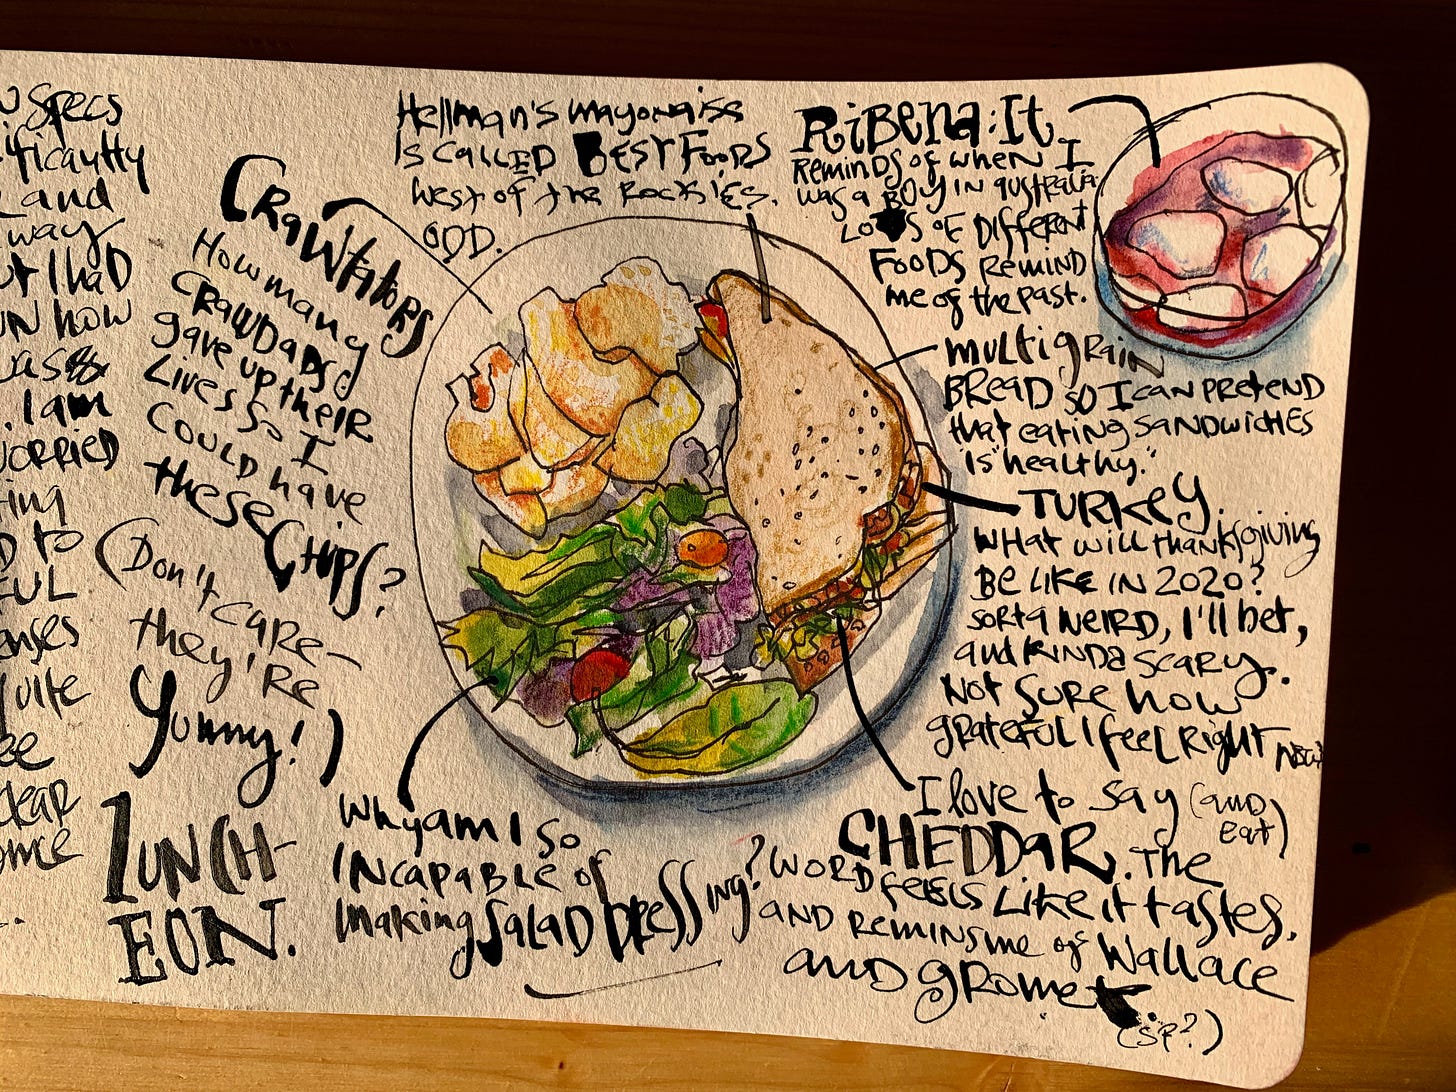 specs
and
way
I had
UN how
I am
WORRIED
ting
D to
FUL
enses
quite
ee
clear
ome
CRaWtatoRS
How many
CRaWDaDS
gave up their
Lives So I
Could have
these Chips?
(Don't care-
they're
Yummy!)
LUNCH-
EON.
Hellman's mayonaiss
Is CalleD BesT FooDs
West of the Rockies.
ODD.
RiBena: It
Reminds of when I
was a BOY in australia.
LOTS OF DIFFERENT
FooDS ReminD
me of the past.
multigRain
BReaD so I can pRetenD
that eating sanDwiches
"is healthy."
TURKEY.
What will thanksgiving
Be Like in 2020?
sorta WeiRD, I'll bet,
and KinDa scary.
Not sure how
grateful I feel Right now.
Why am I so
Incapable of
making SalaD DRessing?
I love to say (and
eat)
CHEDDaR. The
WORD feels Like it tastes,
anD reminsme of Wallace
anD gRomet
(sp?)